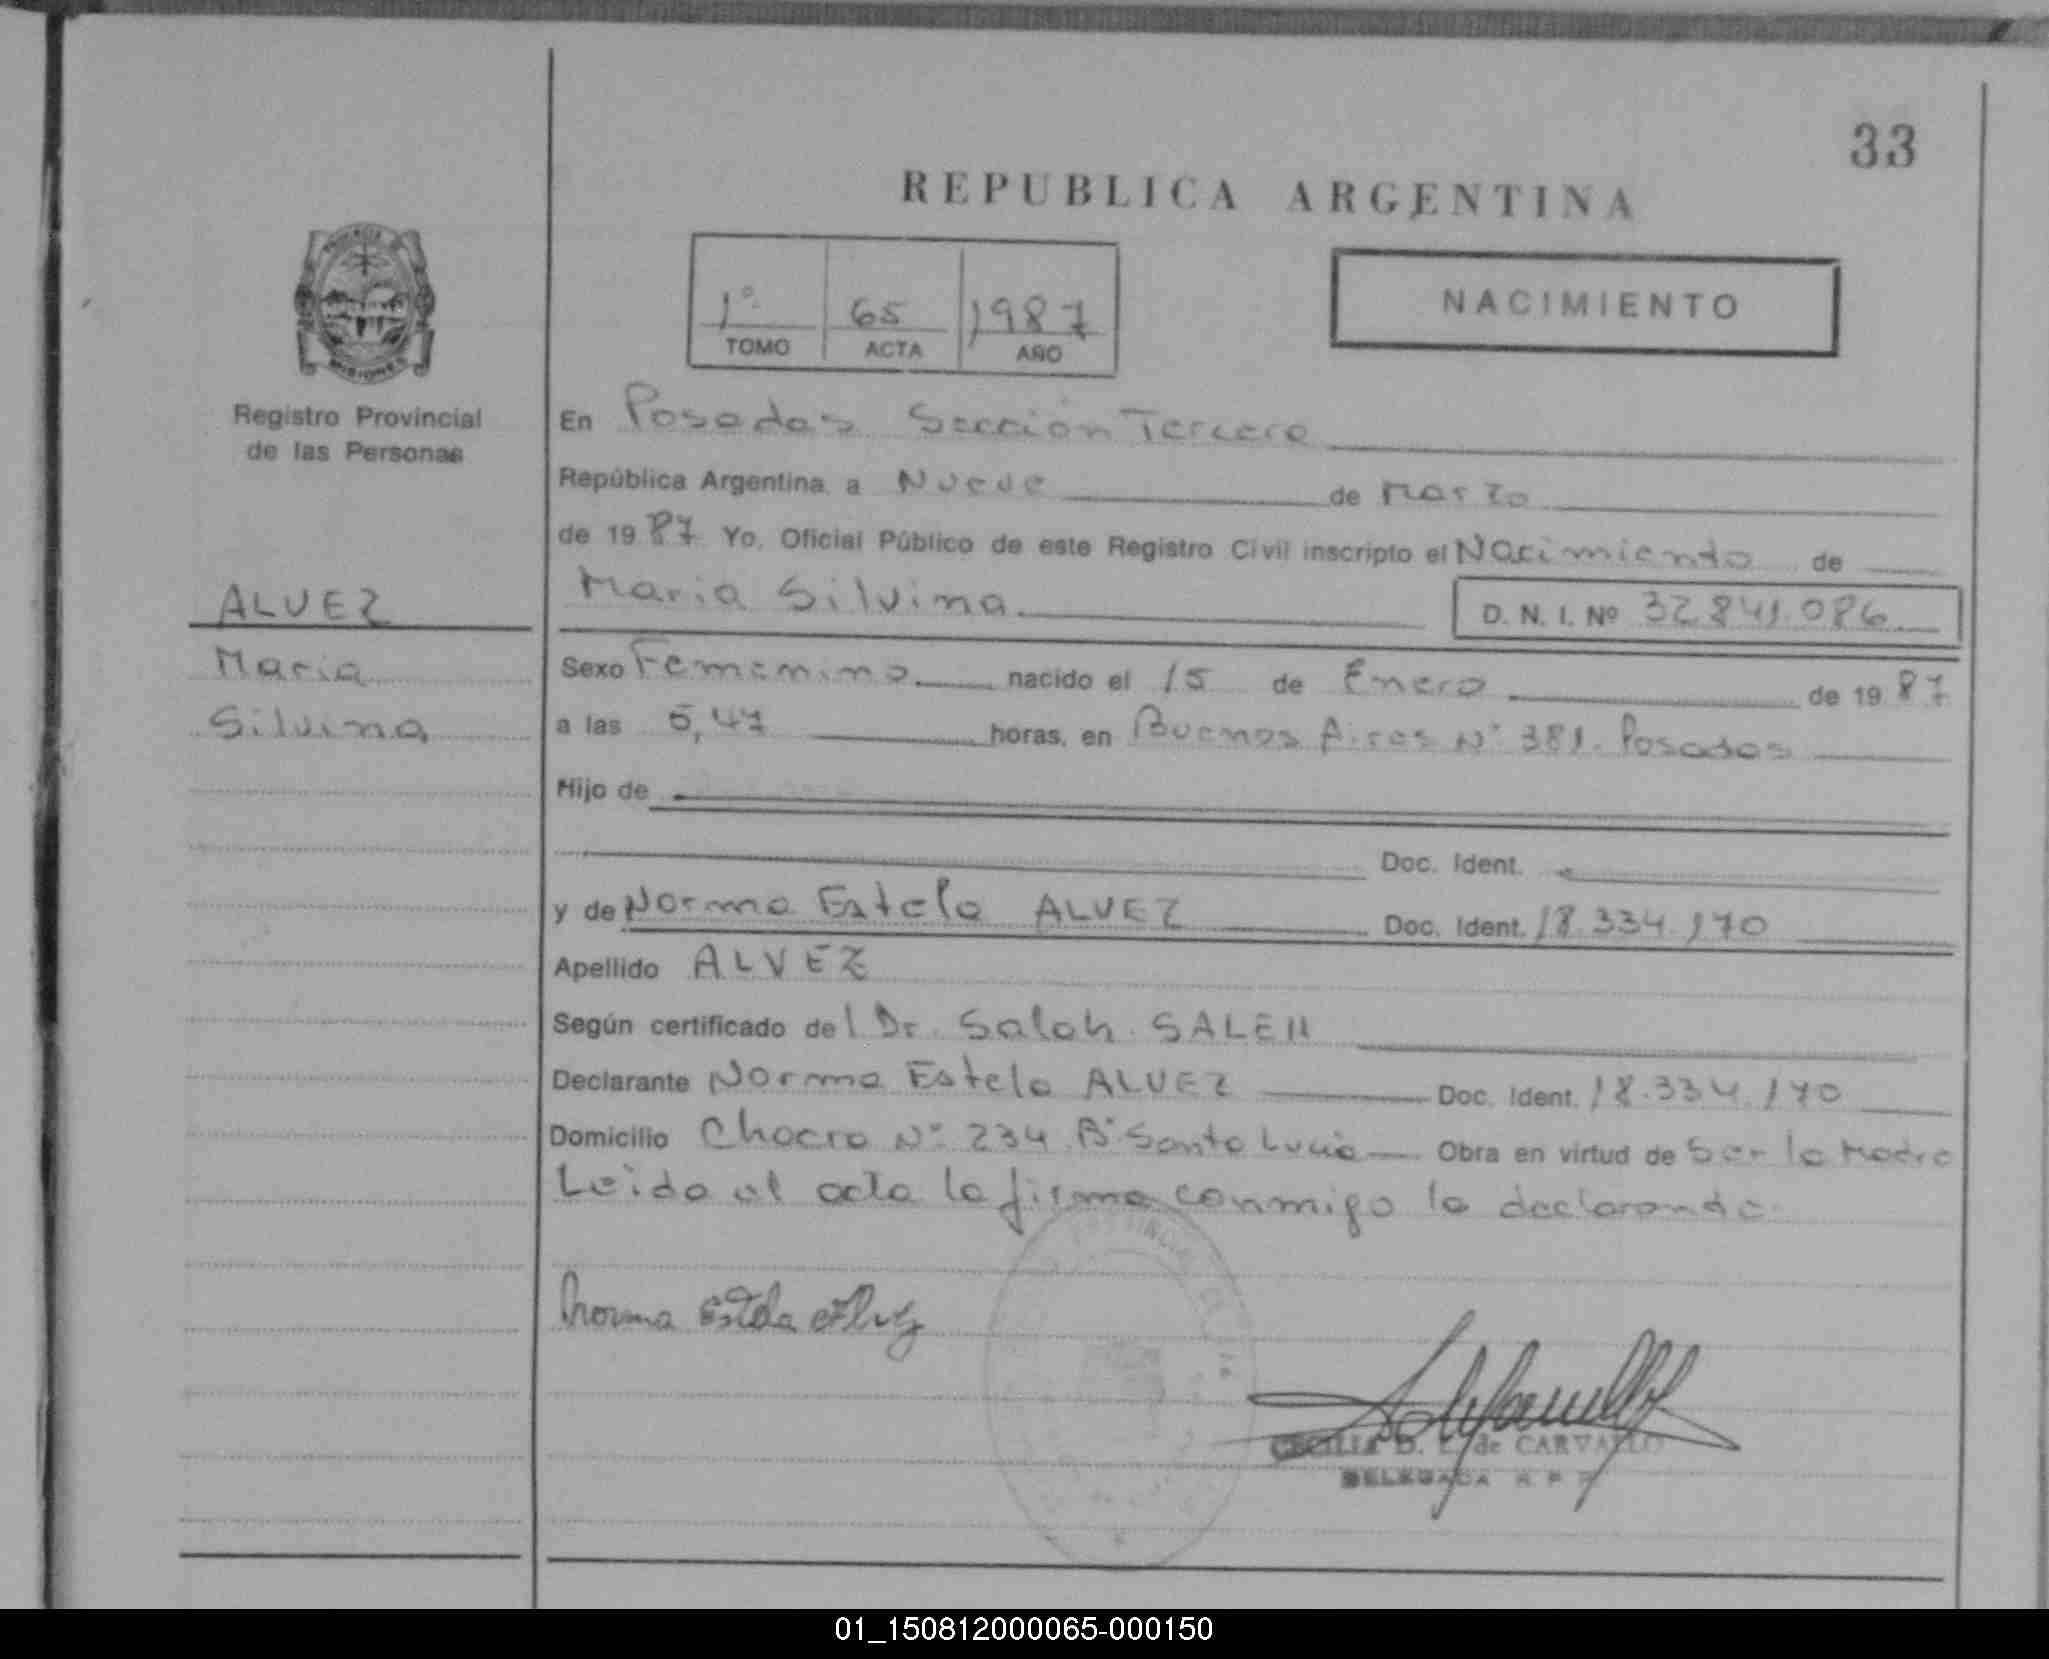 33
REPUBLICA ARGENTINA
1º 65 1987
TOMO ACTA AÑO
NACIMIENTO
MISIONES
Registro Provincial
de las Personas
ALVEZ
Maria
Silvina
En Posadas Sección Tercera
República Argentina, a Nueve de Marzo
de 1987 Yo, Oficial Público de este Registro Civil inscripto el Nacimiento de
Maria Silvina D. N. I. Nº 32.841.086
Sexo Femenino nacido el 15 de Enero de 1987
a las 5,47 horas, en Buenos Aires Nº 381. Posadas
Hijo de
Doc. Ident.
y de Norma Estela ALVEZ Doc. Ident. 18.334.170
Apellido ALVEZ
Según certificado del Dr. Salah SALEH
Declarante Norma Estela ALVEZ Doc. Ident. 18.334.170
Domicilio Chacra Nº 234 Bº Santa Lucia Obra en virtud de Ser la Madre
Leida el acta la firma conmigo la declarante.
Norma Estela Alvez
CECILIA D. de CARVALLO
DELEGADA
01_150812000065-000150